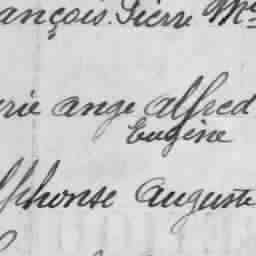 ançois Pierre M
rie ange alfred
Eugène
lphonse auguste